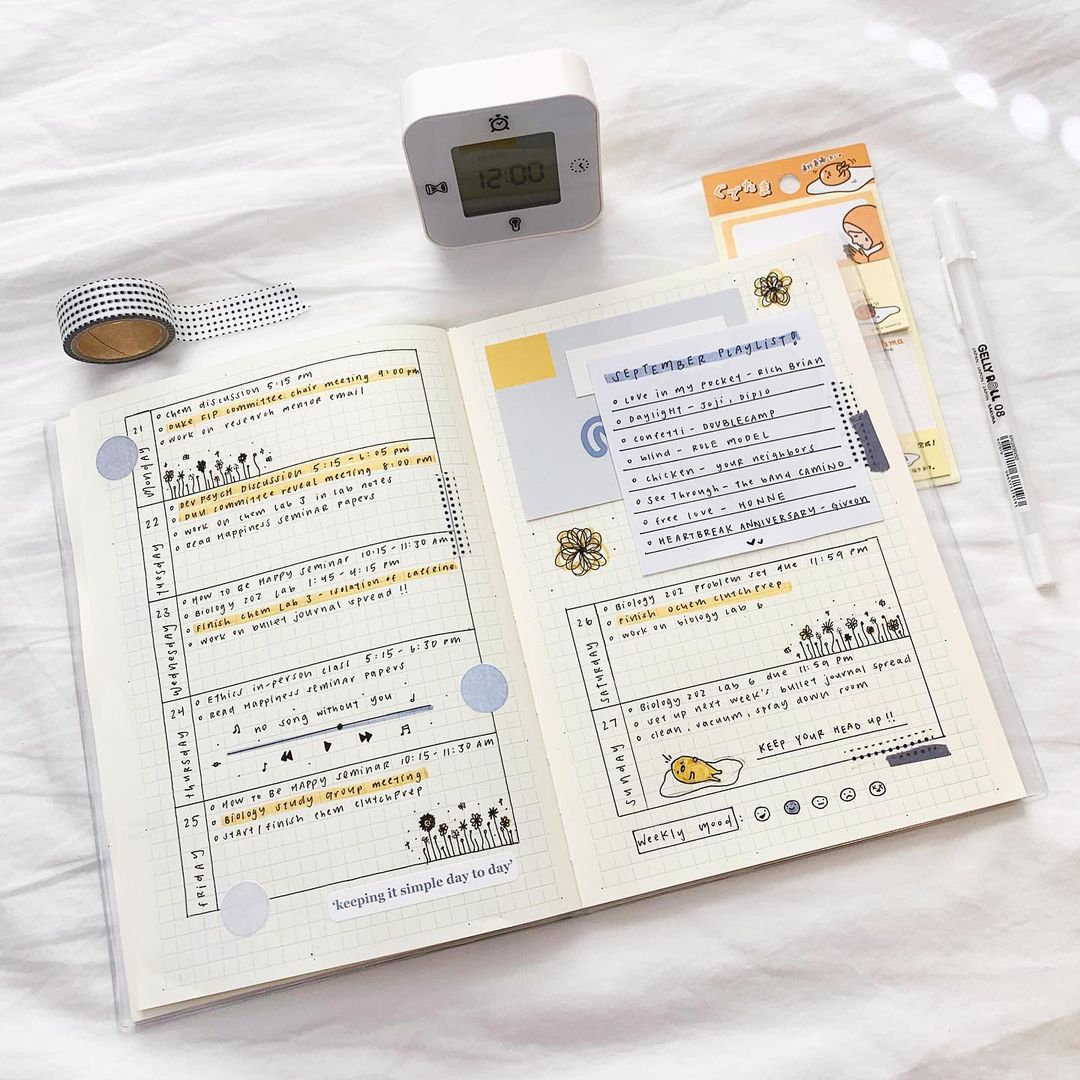 12:00
ぐでたま
GELLY ROLL 08
JAPAN
SAKURA
21
MONDAY
chem discussion 5:15 pm
Duke FIP committee chair meeting 9:00 pm
work on research mentor email
22
Tuesday
Dev Psych Discussion 5:15 - 6:05 pm
committee reveal meeting 8:00 pm
work on chem lab 3 in lab notes
Read Happiness seminar papers
23
Wednesday
How to be Happy seminar 10:15 - 11:30 AM
Biology 202 Lab 1:45 - 4:15 pm
Finish chem lab 3 - isolation of caffeine
work on bullet journal spread !!
24
Thursday
Ethics in-person class 5:15 - 6:30 pm
Read Happiness seminar papers
no song without you
25
Friday
How to be Happy seminar 10:15 - 11:30 AM
Biology study group meeting
start/finish chem clutchprep
'keeping it simple day to day'
SEPTEMBER PLAYLIST!
Love in my pocket - Rich Brian
Daylight - Joji, Diplo
confetti - DOUBLECAMP
blind - ROLE MODEL
chicken - your neighbors
See Through - The Band CAMINO
free love - HONNE
HEARTBREAK ANNIVERSARY - Giveon
26
Saturday
Biology 202 problem set due 11:59 pm
Finish ochem clutchprep
work on biology lab 6
27
Sunday
Biology 202 Lab 6 due 11:59 pm
set up next week's bullet journal spread
clean, vacuum, spray down room
KEEP YOUR HEAD UP!!
weekly mood: